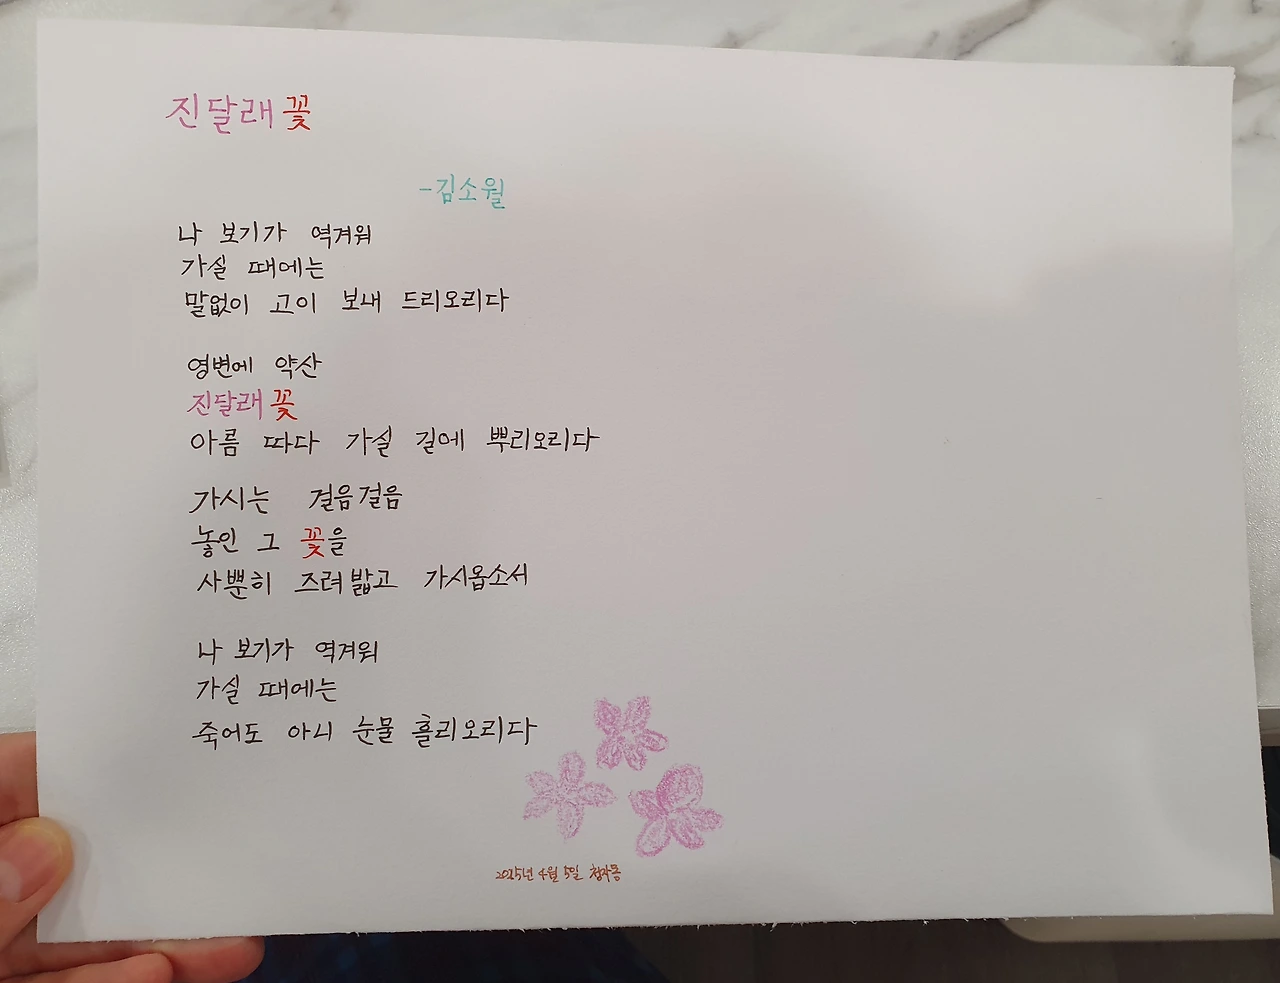 진달래꽃
-김소월
나 보기가 역겨워
가실 때에는
말없이 고이 보내 드리오리다
영변에 약산
진달래꽃
아름 따다 가실 길에 뿌리오리다
가시는 걸음걸음
놓인 그 꽃을
사뿐히 즈려밟고 가시옵소서
나 보기가 역겨워
가실 때에는
죽어도 아니 눈물 흘리오리다
2025년 4월 5일